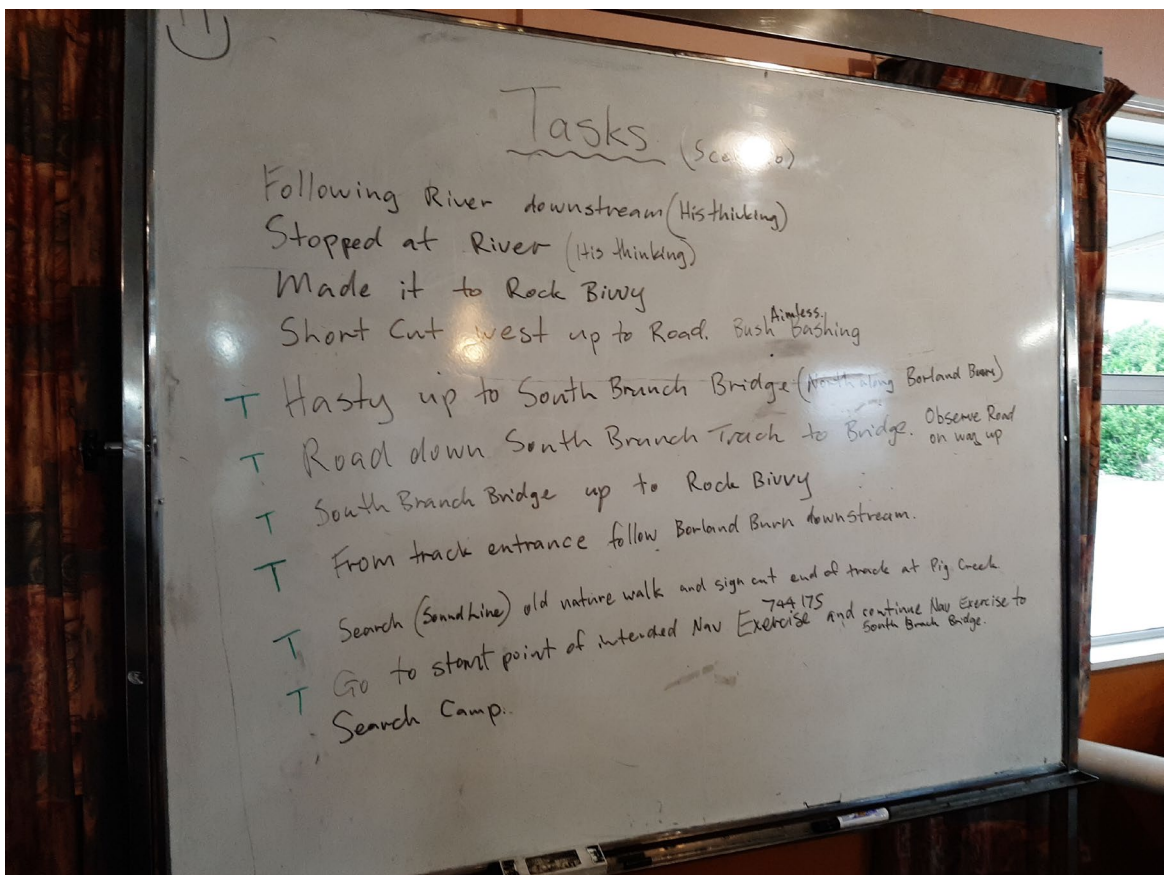 Tasks
(Scenario)
Following River downstream (His thinking)
Stopped at River (His thinking)
Made it to Rock Bivvy
Short Cut west up to Road. Bush Aimless Bashing
T Hasty up to South Branch Bridge (North along Borland Burn)
T Road down South Branch Track to Bridge. Observe Road
on way up
T South Branch Bridge up to Rock Bivvy
T From track entrance follow Borland Burn downstream.
T Search (Sound Line) old nature walk and sign cut end of track at Pig Creek
744 175
T Go to start point of intended Nav Exercise and continue Nav Exercise to
South Brach Bridge.
Search Camp.